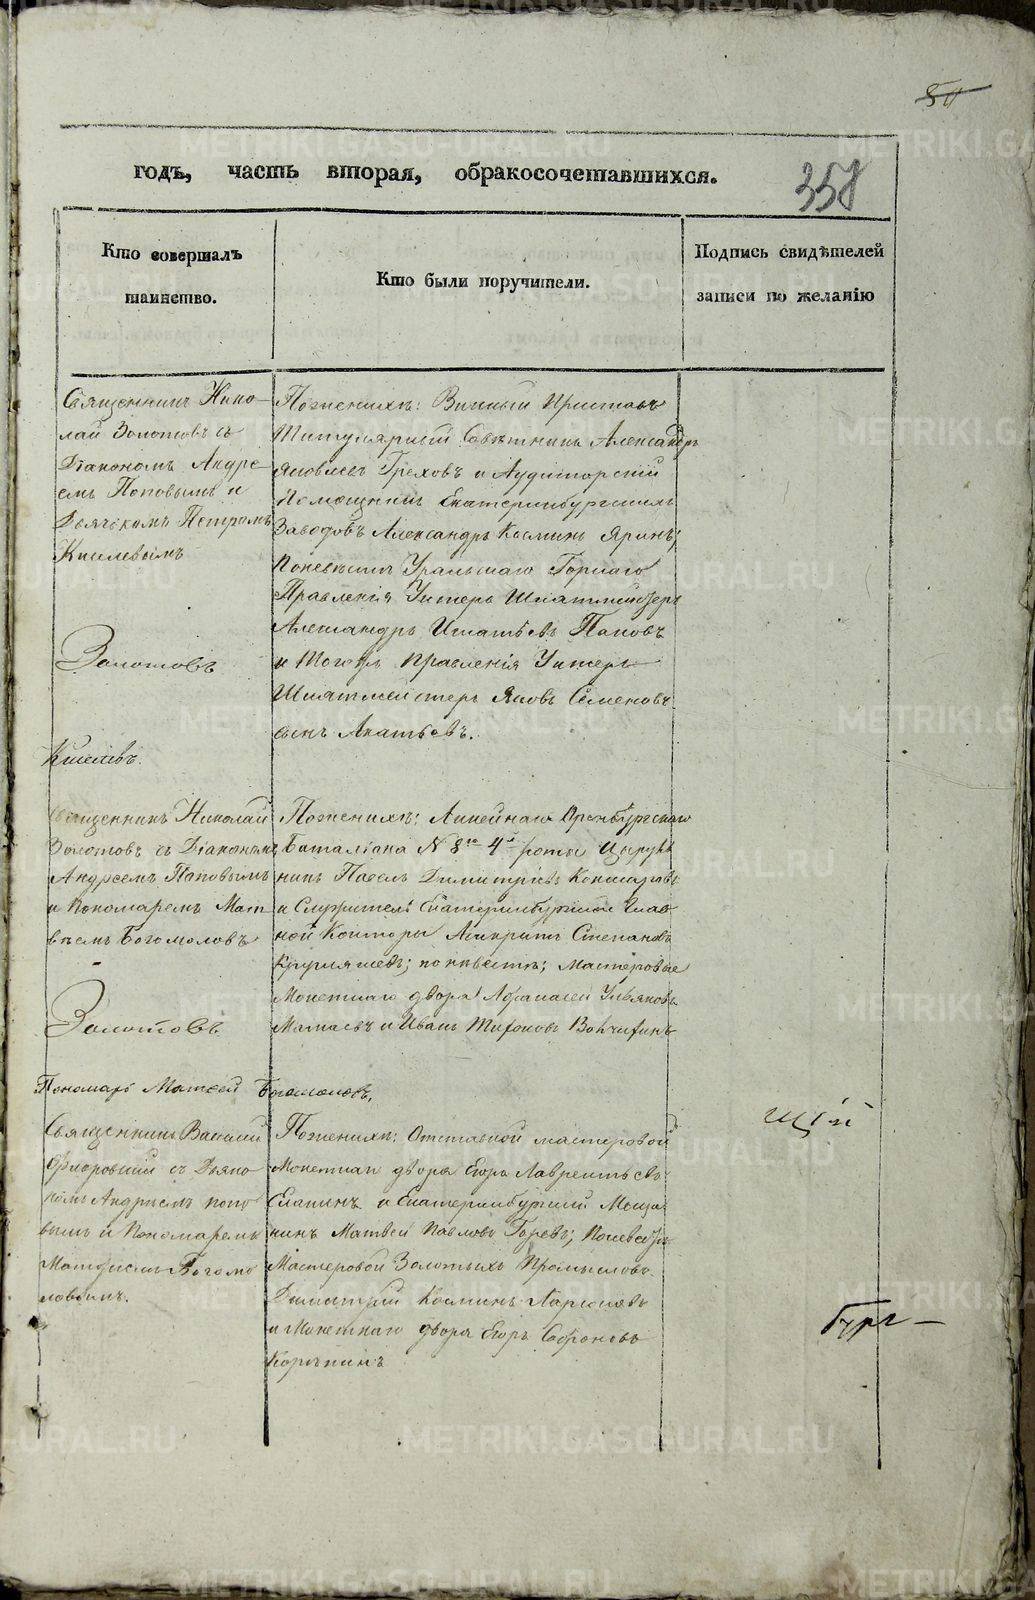 50
годъ, часть вторая, обракосочетавшихся.
358
Кто совершалъ
таинство.
Кто были поручители.
Подпись свидѣтелей
записи по желанію
Священникъ Нико-
лай Золотовъ съ
Діакономъ Андре-
емъ Поповымъ и
Дьячкомъ Петромъ
Киселевымъ
Золотовъ
Киселевъ.
По женихѣ: Винный Приставъ
Титулярный Совѣтникъ Александръ
Яковлевъ Греховъ и Аудиторскій
Помощникъ Екатеринбургскихъ
Заводовъ Александръ Козминъ Яринъ;
По невѣстѣ Уральскаго Горнаго
Правленія Унтеръ Шихтмейстеръ
Александръ Игнатьевъ Поповъ
и того жъ Правленія Унтеръ
Шихтмейстеръ Яковъ Семеновъ
сынъ Акатьевъ.
Священникъ Николай
Золотовъ съ Діакономъ
Андреемъ Поповымъ
и Пономаремъ Мат
вѣемъ Богомоловъ
Золотовъ
Пономарь Матвей Богомоловъ.
По женихѣ: Линейнаго Оренбургскаго
Баталіона N 8го 4й роты Цырюль
никъ Павелъ Димитріевъ
и Служитель Екатеринбургской Глав
ной Конторы Степановъ
по невѣстѣ; Мастеровые
Монетнаго двора Афанасей Ульяновъ
и Иванъ Тифоновъ
Священникъ Василій
съ Дьяко
номъ Андреемъ Попо
вымъ и Пономаремъ
Матфіемъ Богомо
ловымъ.
По женихѣ: Отставной мастеровой
Монетнаго двора Егоръ Лаврентьевъ
и Екатеринбургскій Меща
нинъ Матвей Павловъ; По невѣстѣ
Мастеровой Золотыхъ Промысловъ
Димитрій Козминъ Ларіоновъ
и Монетнаго двора Егоръ Софроновъ
щій
бург-
METRIKI.GASO-URAL.RU